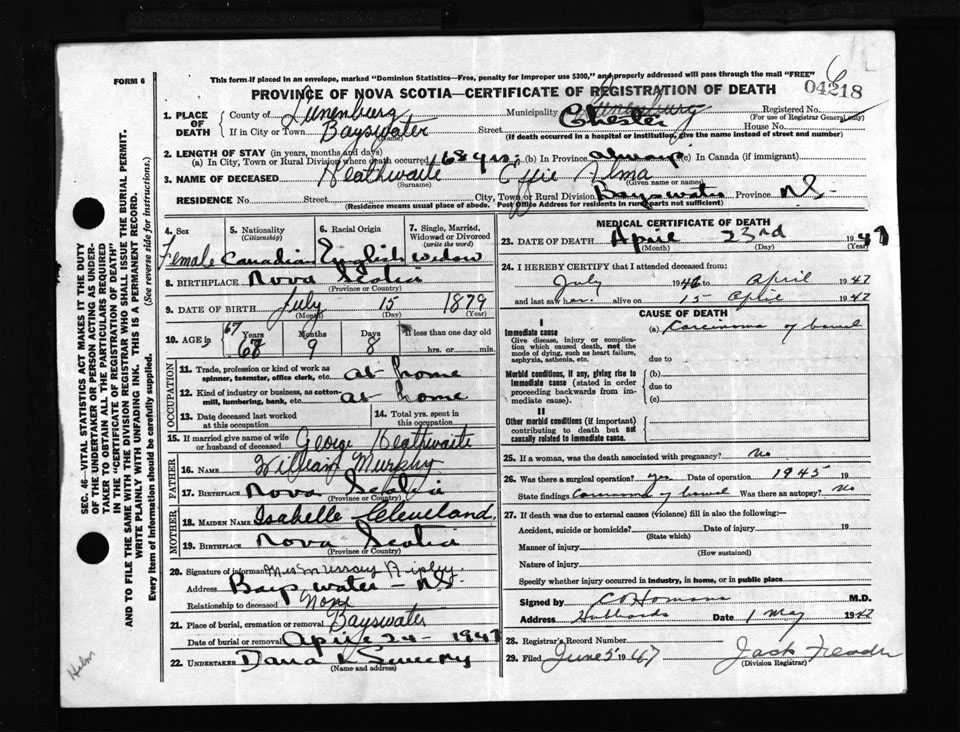 FORM 6
This form if placed in an envelope, marked "Dominion Statistics—Free, penalty for improper use $300," and properly addressed will pass through the mail "FREE"
04218
PROVINCE OF NOVA SCOTIA—CERTIFICATE OF REGISTRATION OF DEATH
1. PLACE OF DEATH
County of Lunenburg
Municipality Lunenburg Chester
Registered No.
(For use of Registrar General only)
If in City or Town Bayswater
(Name)
Street
House No.
(If death occurred in a hospital or institution, give the name instead of street and number)
2. LENGTH OF STAY (in years, months and days)
(a) In City, Town or Rural Division where death occurred 68 yrs. (b) In Province always (c) In Canada (if immigrant)
3. NAME OF DECEASED Heathwaite Effie Alma
(Surname) (Given name or names)
RESIDENCE No. Street City, Town or Rural Division Bayswater Province N.S.
(Residence means usual place of abode. Post Office Address for residents in rural parts not sufficient)
4. Sex
Female
5. Nationality
(Citizenship)
Canadian
6. Racial Origin
English
7. Single, Married, Widowed or Divorced
(write the word)
Widow
8. BIRTHPLACE Nova Scotia
(Province or Country)
9. DATE OF BIRTH July 15 1879
(Month) (Day) (Year)
10. AGE in 67 68 Years 9 Months 8 Days
If less than one day old
hrs. or min.
OCCUPATION
11. Trade, profession or kind of work as spinner, teamster, office clerk, etc. at home
12. Kind of industry or business, as cotton mill, lumbering, bank, etc. at home
13. Date deceased last worked at this occupation
14. Total yrs. spent in this occupation
15. If married give name of wife or husband of deceased George Heathwaite
FATHER
16. NAME William Murphy
17. BIRTHPLACE Nova Scotia
(Province or Country)
MOTHER
18. MAIDEN NAME Isabelle Cleveland.
19. BIRTHPLACE Nova Scotia
(Province or Country)
20. Signature of informant Mrs Murray Ripley.
Address Bayswater - N.S.
Relationship to deceased None
21. Place of burial, cremation or removal Bayswater
Date of burial or removal April 24 - 1947
22. UNDERTAKER Dana K Sweeny
(Name and address)
MEDICAL CERTIFICATE OF DEATH
23. DATE OF DEATH April 23rd 1947
(Month) (Day) (Year)
24. I HEREBY CERTIFY that I attended deceased from:
July 1946 to April 1947
and last saw alive on 15 April 1947
CAUSE OF DEATH
I
Immediate cause
Give disease, injury or complication which caused death, not the mode of dying, such as heart failure, asphyxia, asthenia, etc.
(a) Carcinoma of bowel
due to
Morbid conditions, if any, giving rise to immediate cause (stated in order proceeding backwards from immediate cause).
(b)
due to
(c)
II
Other morbid conditions (if important) contributing to death but not causally related to immediate cause.
25. If a woman, was the death associated with pregnancy? No
26. Was there a surgical operation? yes Date of operation 1945 19
State findings Carcinoma of bowel Was there an autopsy? No
27. If death was due to external causes (violence) fill in also the following:—
Accident, suicide or homicide? Date of injury 19
(State which)
Manner of injury
(How sustained)
Nature of injury
Specify whether injury occurred in industry, in home, or in public place
Signed by M.D.
Address Hubbards Date 1 May 1947
28. Registrar's Record Number
29. Filed June 5 1947 Jack
(Division Registrar)
SEC. 46—VITAL STATISTICS ACT MAKES IT THE DUTY OF THE UNDERTAKER OR PERSON ACTING AS UNDERTAKER TO OBTAIN ALL THE PARTICULARS REQUIRED IN THE "CERTIFICATE OF REGISTRATION OF DEATH" AND TO FILE THE SAME WITH THE DIVISION REGISTRAR WHO SHALL ISSUE THE BURIAL PERMIT.
WRITE PLAINLY WITH UNFADING INK. THIS IS A PERMANENT RECORD.
Every item of information should be carefully supplied. (See reverse side for instructions.)